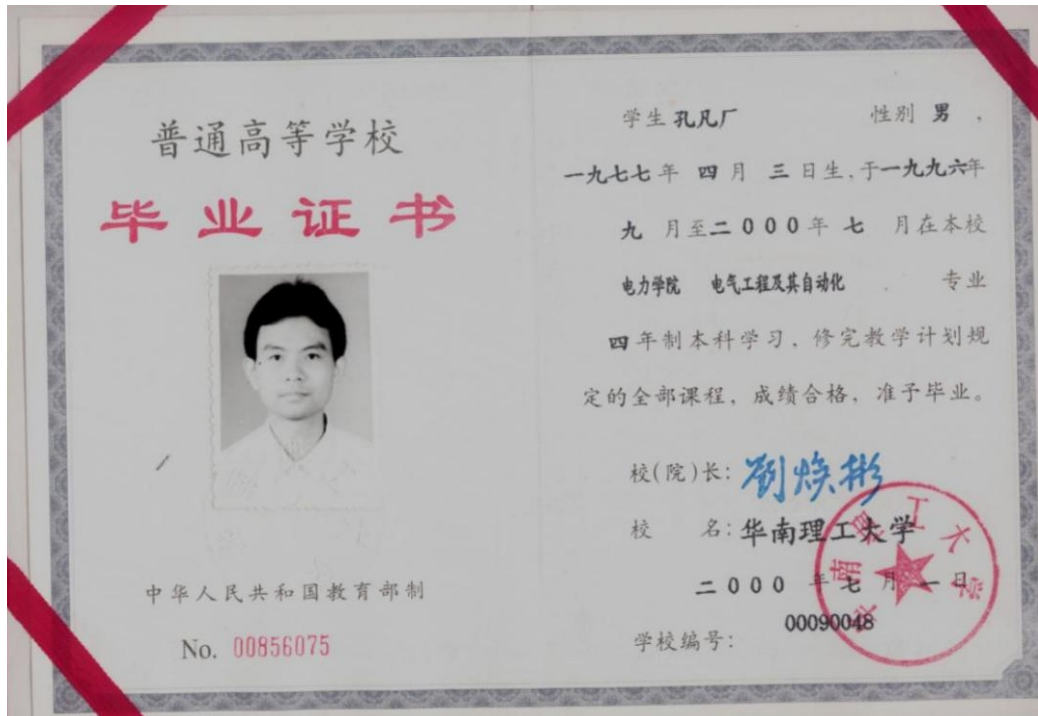 普通高等学校
毕业证书
中华人民共和国教育部制
No. 00856075
学生 孔凡厂 性别 男 ，
一九七七年 四 月 三 日生，于一九九六年
九 月至二000年 七 月在本校
电力学院 电气工程及其自动化 专业
四年制本科学习，修完教学计划规
定的全部课程，成绩合格，准予毕业。
校(院)长: 刘焕彬
校 名: 华南理工大学
二000 年七 月 一日
学校编号: 00090048
华南理工大学